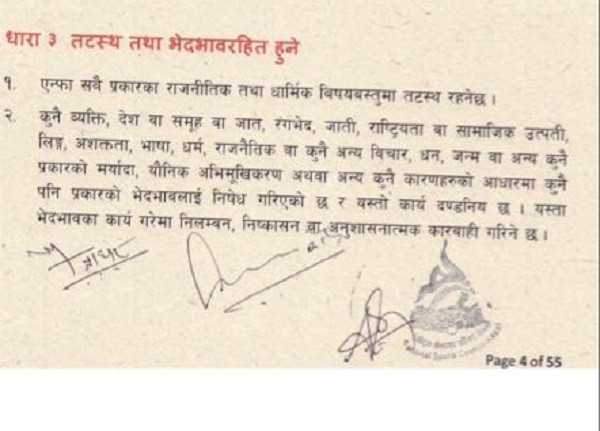 धारा ३ तटस्थ तथा भेदभावरहित हुने
१. एन्फा सबै प्रकारका राजनीतिक तथा धार्मिक विषयबस्तुमा तटस्थ रहनेछ ।
२. कुनै ब्यक्ति, देश वा समूह वा जात, रंगभेद, जाती, राष्ट्रियता वा सामाजिक उत्पती,
लिङ्ग, अशक्तता, भाषा, धर्म, राजनैतिक वा कुनै अन्य विचार, धन, जन्म वा अन्य कुनै
प्रकारको मर्यादा, यौनिक अभिमूखिकरण अथवा अन्य कुनै कारणहरुको आधारमा कुनै
पनि प्रकारको भेदभावलाई निषेध गरिएको छ र यस्तो कार्य दण्डनिय छ । यस्ता
भेदभावका कार्य गरेमा निलम्बन, निष्कासन वा अनुशासनात्मक कारबाही गरिने छ ।
Page 4 of 55